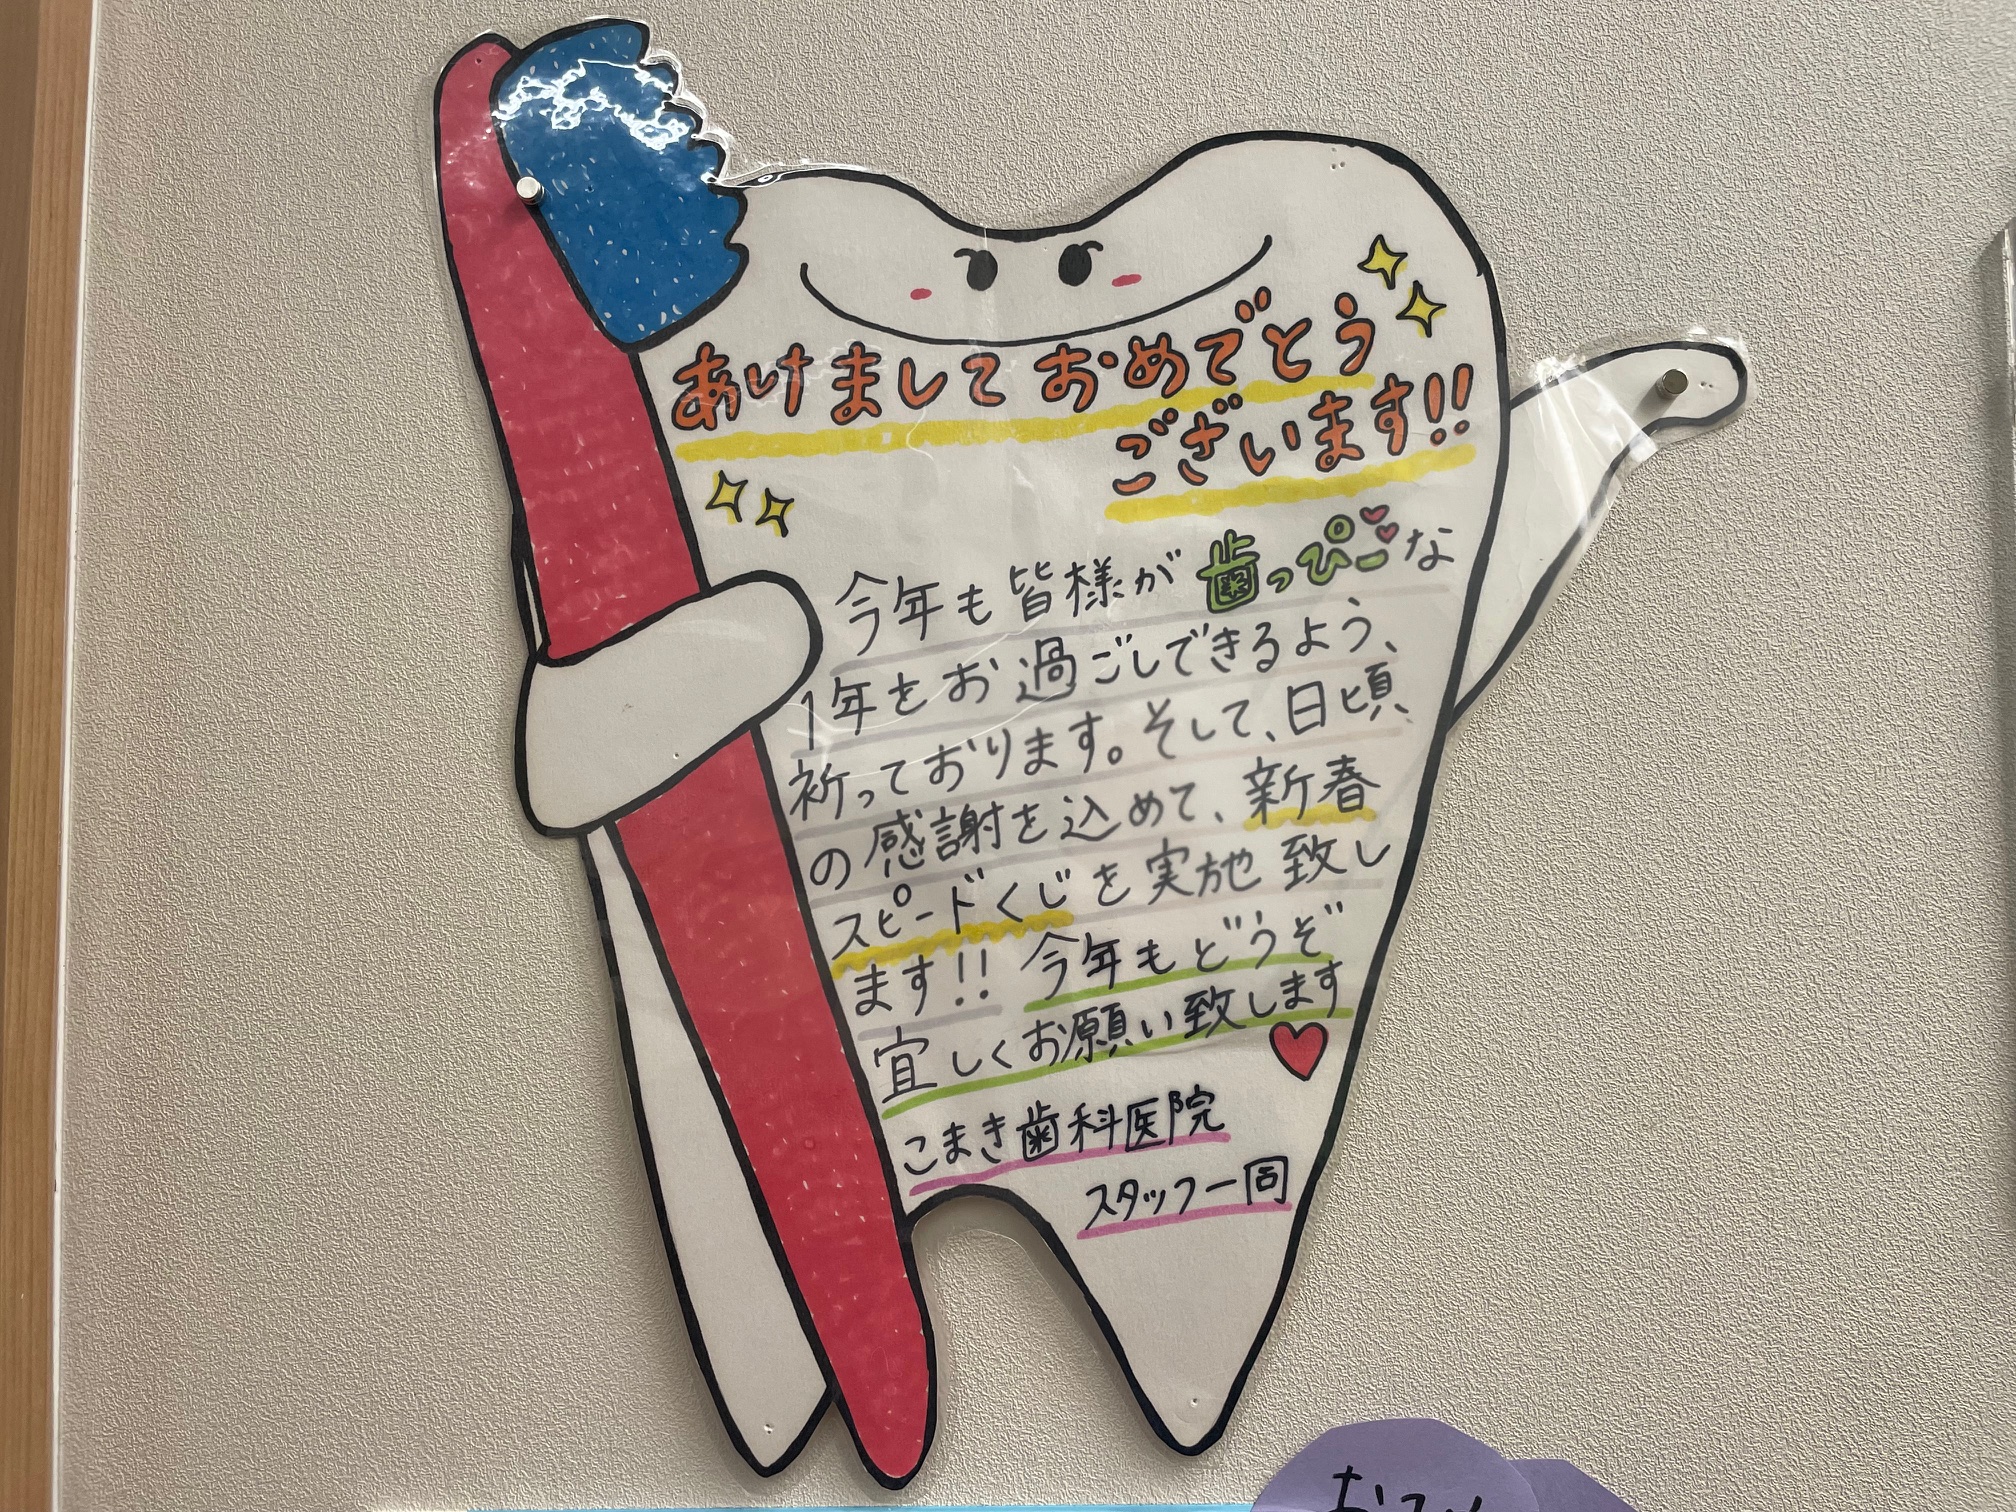 あけましておめでとう
ございます!!
今年も皆様が歯っぴーな
1年をお過ごしできるよう、
祈っております。そして、日頃
の感謝を込めて、新春
スピードくじを実施致し
ます!! 今年もどうぞ
宜しくお願い致します
こまき歯科医院
スタッフ一同